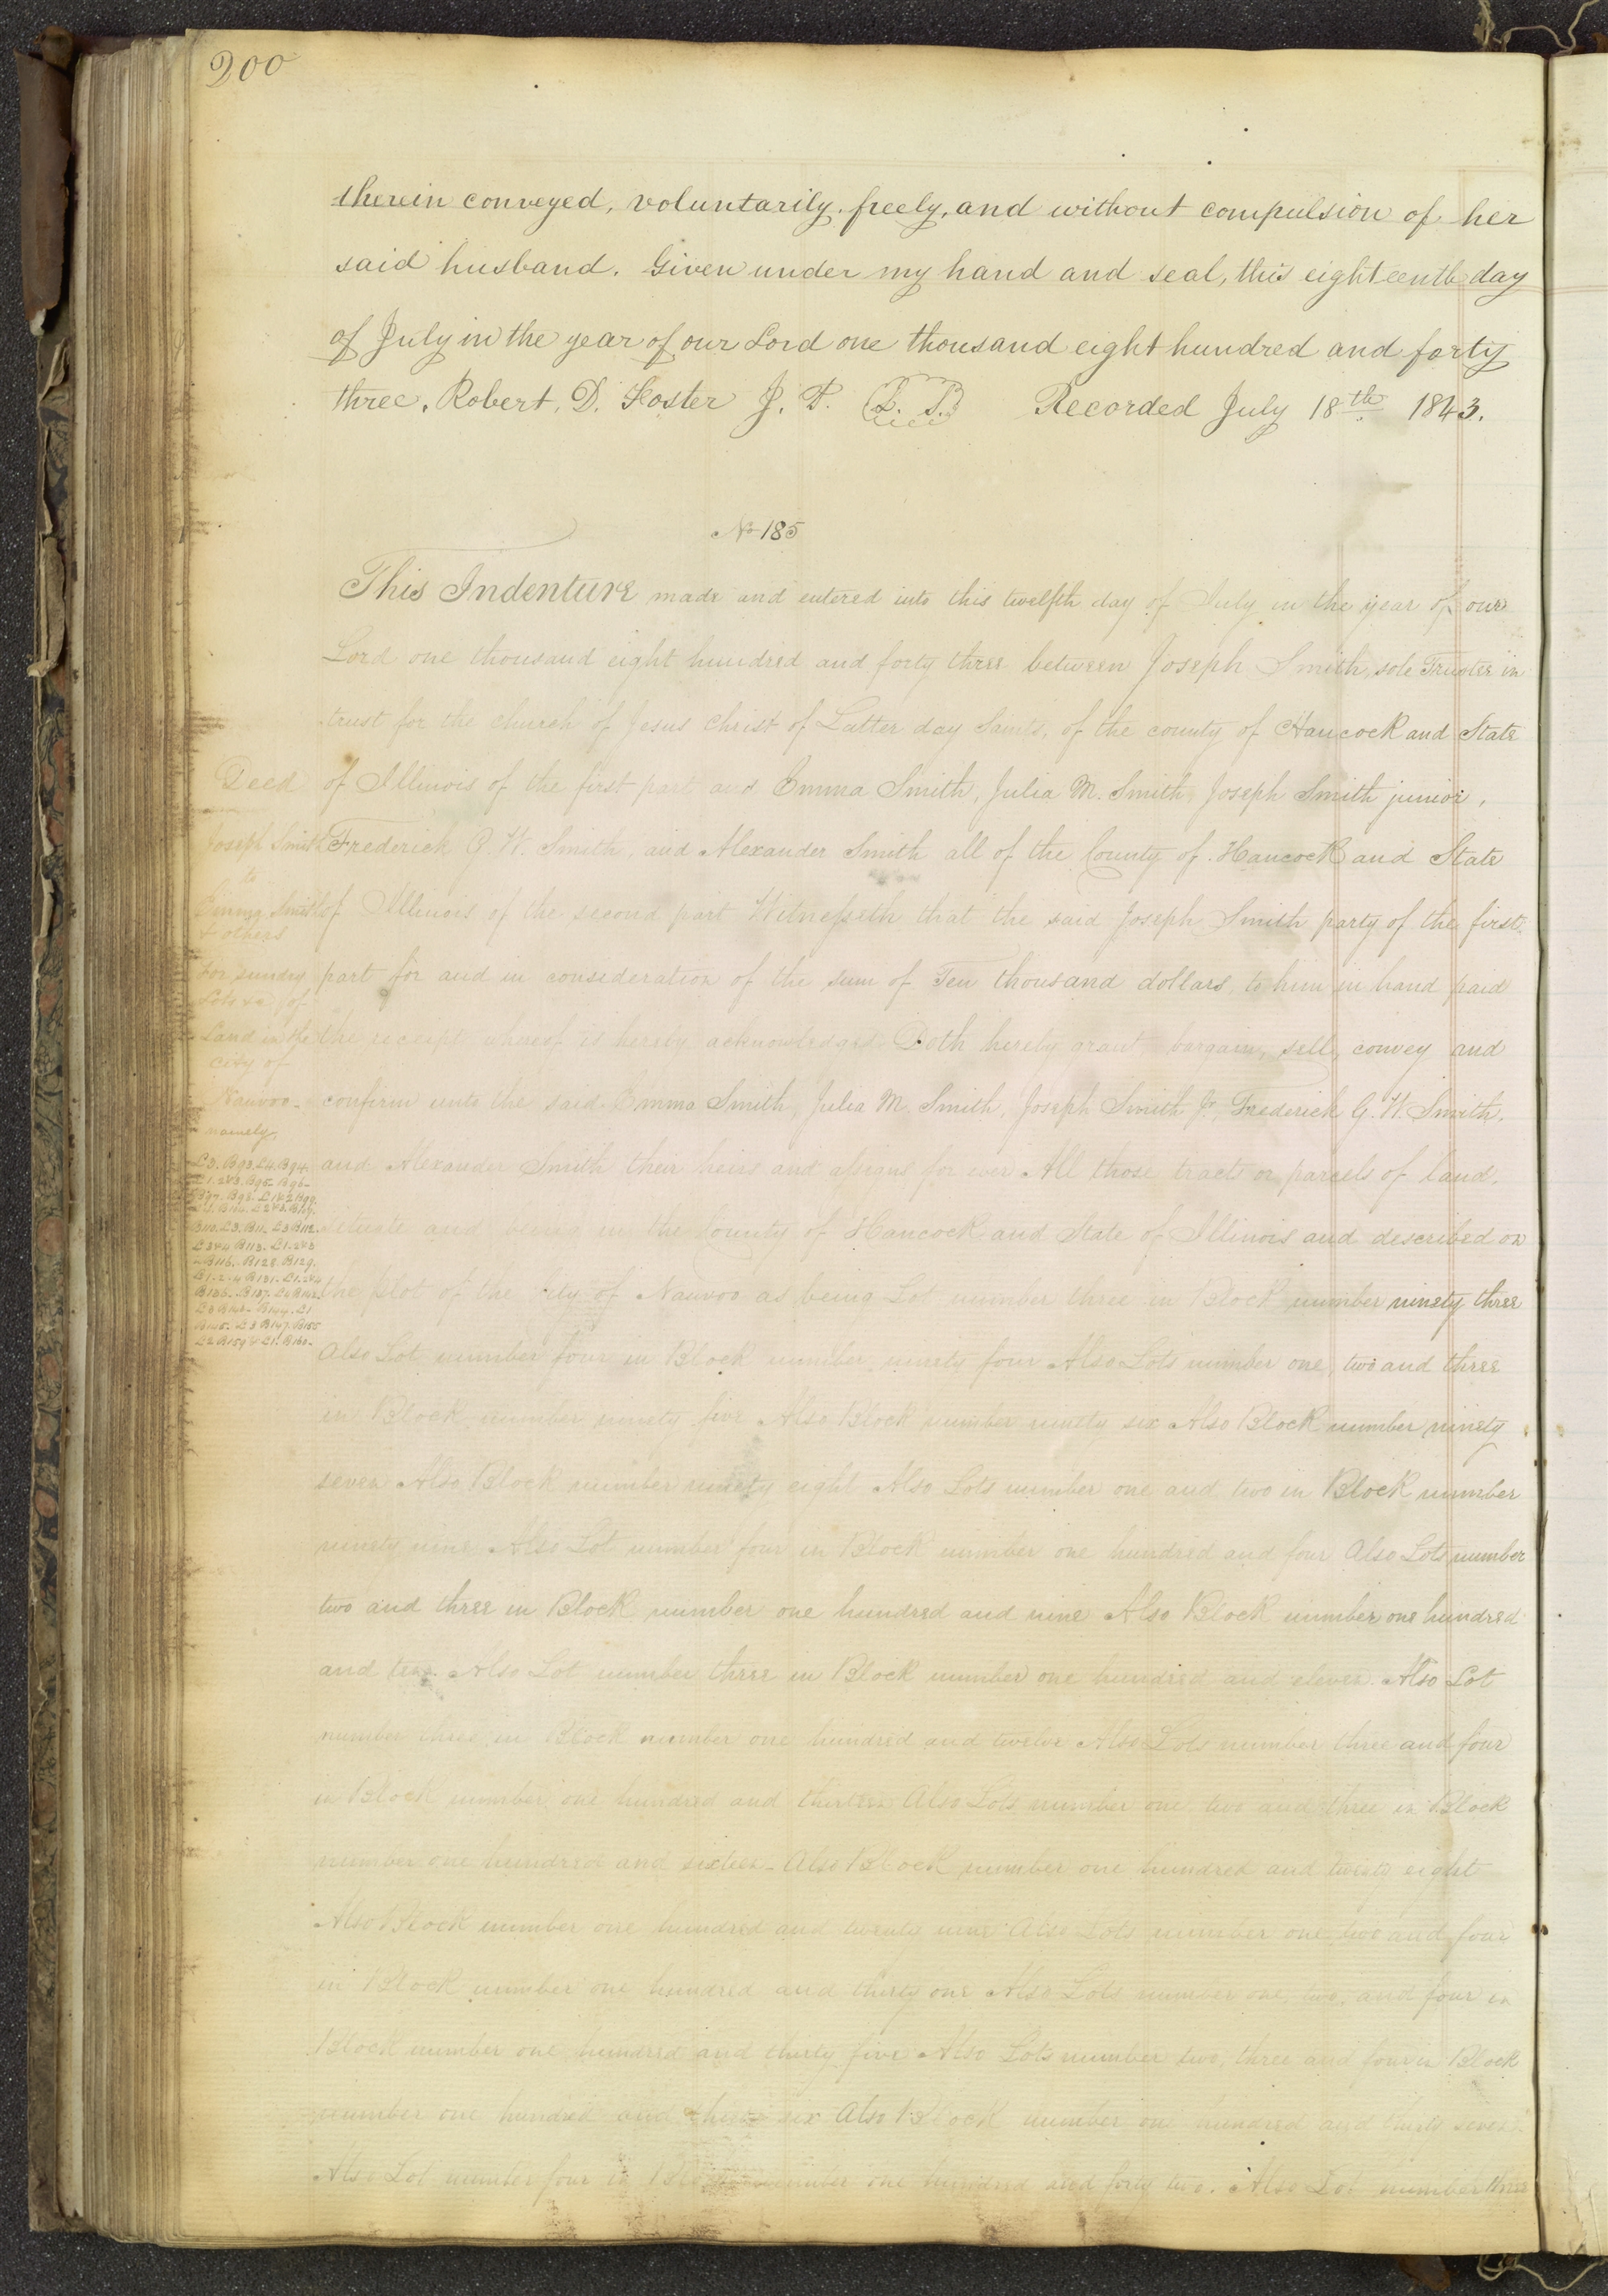 200
therein conveyed, voluntarily, freely, and without compulsion of her
said husband. Given under my hand and seal, this eighteenth day
of July in the year of our Lord one thousand eight hundred and forty
three. Robert. D. Foster J. P. (L. S.) Recorded July 18th 1843.
No 185
This Indenture made and entered into this twelfth day of July in the year of our
Lord one thousand eight hundred and forty three between Joseph Smith, sole Trustee in
trust for the church of Jesus Christ of Latter day Saints, of the county of Hancock and State
of Illinois of the first part and Emma Smith, Julia M. Smith, Joseph Smith junior,
Frederick G. W. Smith, and Alexander Smith all of the County of Hancock and State
of Illinois of the second part Witnesseth that the said Joseph Smith party of the first
part for and in consideration of the sum of Ten thousand dollars, to him in hand paid
the receipt whereof is hereby acknowledged Doth hereby grant, bargain, sell, convey and
confirm unto the said Emma Smith, Julia M. Smith, Joseph Smith Jr, Frederick G. W. Smith,
and Alexander Smith their heirs and assigns for ever All those tracts or parcels of land,
situate and being in the County of Hancock and State of Illinois and described on
the plot of the City of Nauvoo as being Lot number three in Block number ninety three
Also Lot number four in Block number ninety four Also Lots number one, two and three
in Block number ninety five Also Block number ninety six Also Block number ninety
seven Also Block number ninety eight Also Lots number one and two in Block number
ninety nine Also Lot number four in Block number one hundred and four Also Lots number
two and three in Block number one hundred and nine Also Block number one hundred
and ten. Also Lot number three in Block number one hundred and eleven. Also Lot
number three in Block number one hundred and twelve Also Lots number three and four
in Block number one hundred and thirteen Also Lots number one, two and three in Block
number one hundred and sixteen - Also Block number one hundred and twenty eight
Also Block number one hundred and twenty nine Also Lots number one, two and four
in Block number one hundred and thirty one Also Lots number one, two, and four in
Block number one hundred and thirty five Also Lots number two, three and four in Block
number one hundred and thirty six Also Block number one hundred and thirty seven.
Also Lot number four in Block number one hundred and forty two. Also Lot number three
Deed
Joseph Smith
to
Emma Smith
& others
For sundry
Lots &c of
Land in the
City of
Nauvoo -
namely,
L3. B93. L4. B94.
L1.2&3. B95. B96-
B97. B98. L1&2 B99.
L2&3. B109.
B110. L3. B111. L3 B112.
L3&4 B113. L1.2&3
B116. B128. B129.
L1.2.4 B131. L1.2&4
B135. B137. L4 B142.
L3 B143. B144. L1
B145. L3 B147. B155
L2 B159 & L1. B160-